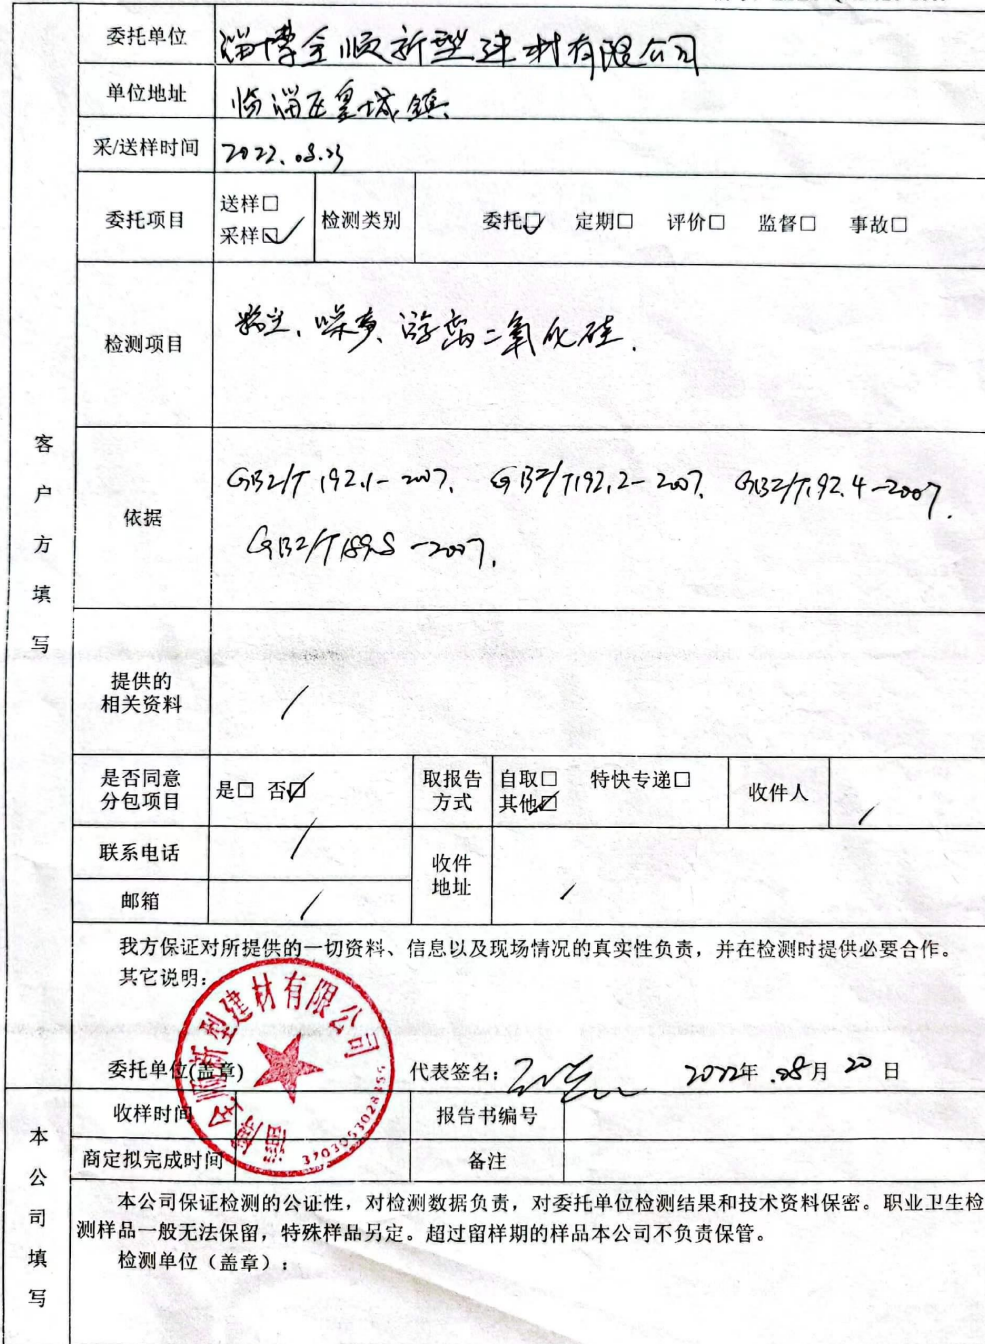 委托单位 淄博全顺新型建材有限公司
单位地址 临淄区皇城镇
采/送样时间 2022.08.23
委托项目 送样□ 采样☑ 检测类别 委托☑ 定期□ 评价□ 监督□ 事故□
检测项目 粉尘、噪声、游离二氧化硅.
客户方填写
依据 GBZ/T 192.1-2007. GBZ/T192.2-2007. GBZ/T192.4-2007.
GBZ/T189.8-2007.
提供的
相关资料 /
是否同意
分包项目 是□ 否☑ 取报告
方式 自取□ 特快专递□
其他☑ 收件人 /
联系电话 /
收件
地址 /
邮箱 /
我方保证对所提供的一切资料、信息以及现场情况的真实性负责，并在检测时提供必要合作。
其它说明：
淄博全顺新型建材有限公司
委托单位(盖章) 代表签名： 2022年 08月 20 日
收样时间 报告书编号
商定拟完成时间 备注
本公司填写
本公司保证检测的公证性，对检测数据负责，对委托单位检测结果和技术资料保密。职业卫生检
测样品一般无法保留，特殊样品另定。超过留样期的样品本公司不负责保管。
检测单位（盖章）：